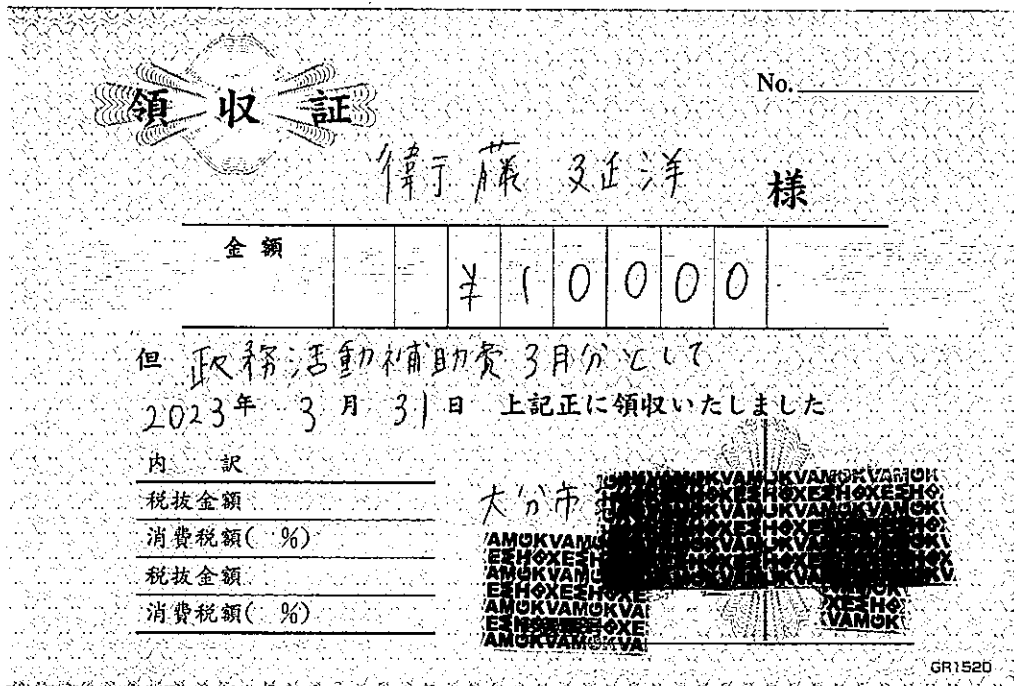 領収証
No.
衛藤延洋 様
金額 ¥10000
但 政務活動補助費3月分として
2023年 3月 31日 上記正に領収いたしました
内訳
税抜金額
消費税額( %)
税抜金額
消費税額( %)
大分市
GR1520